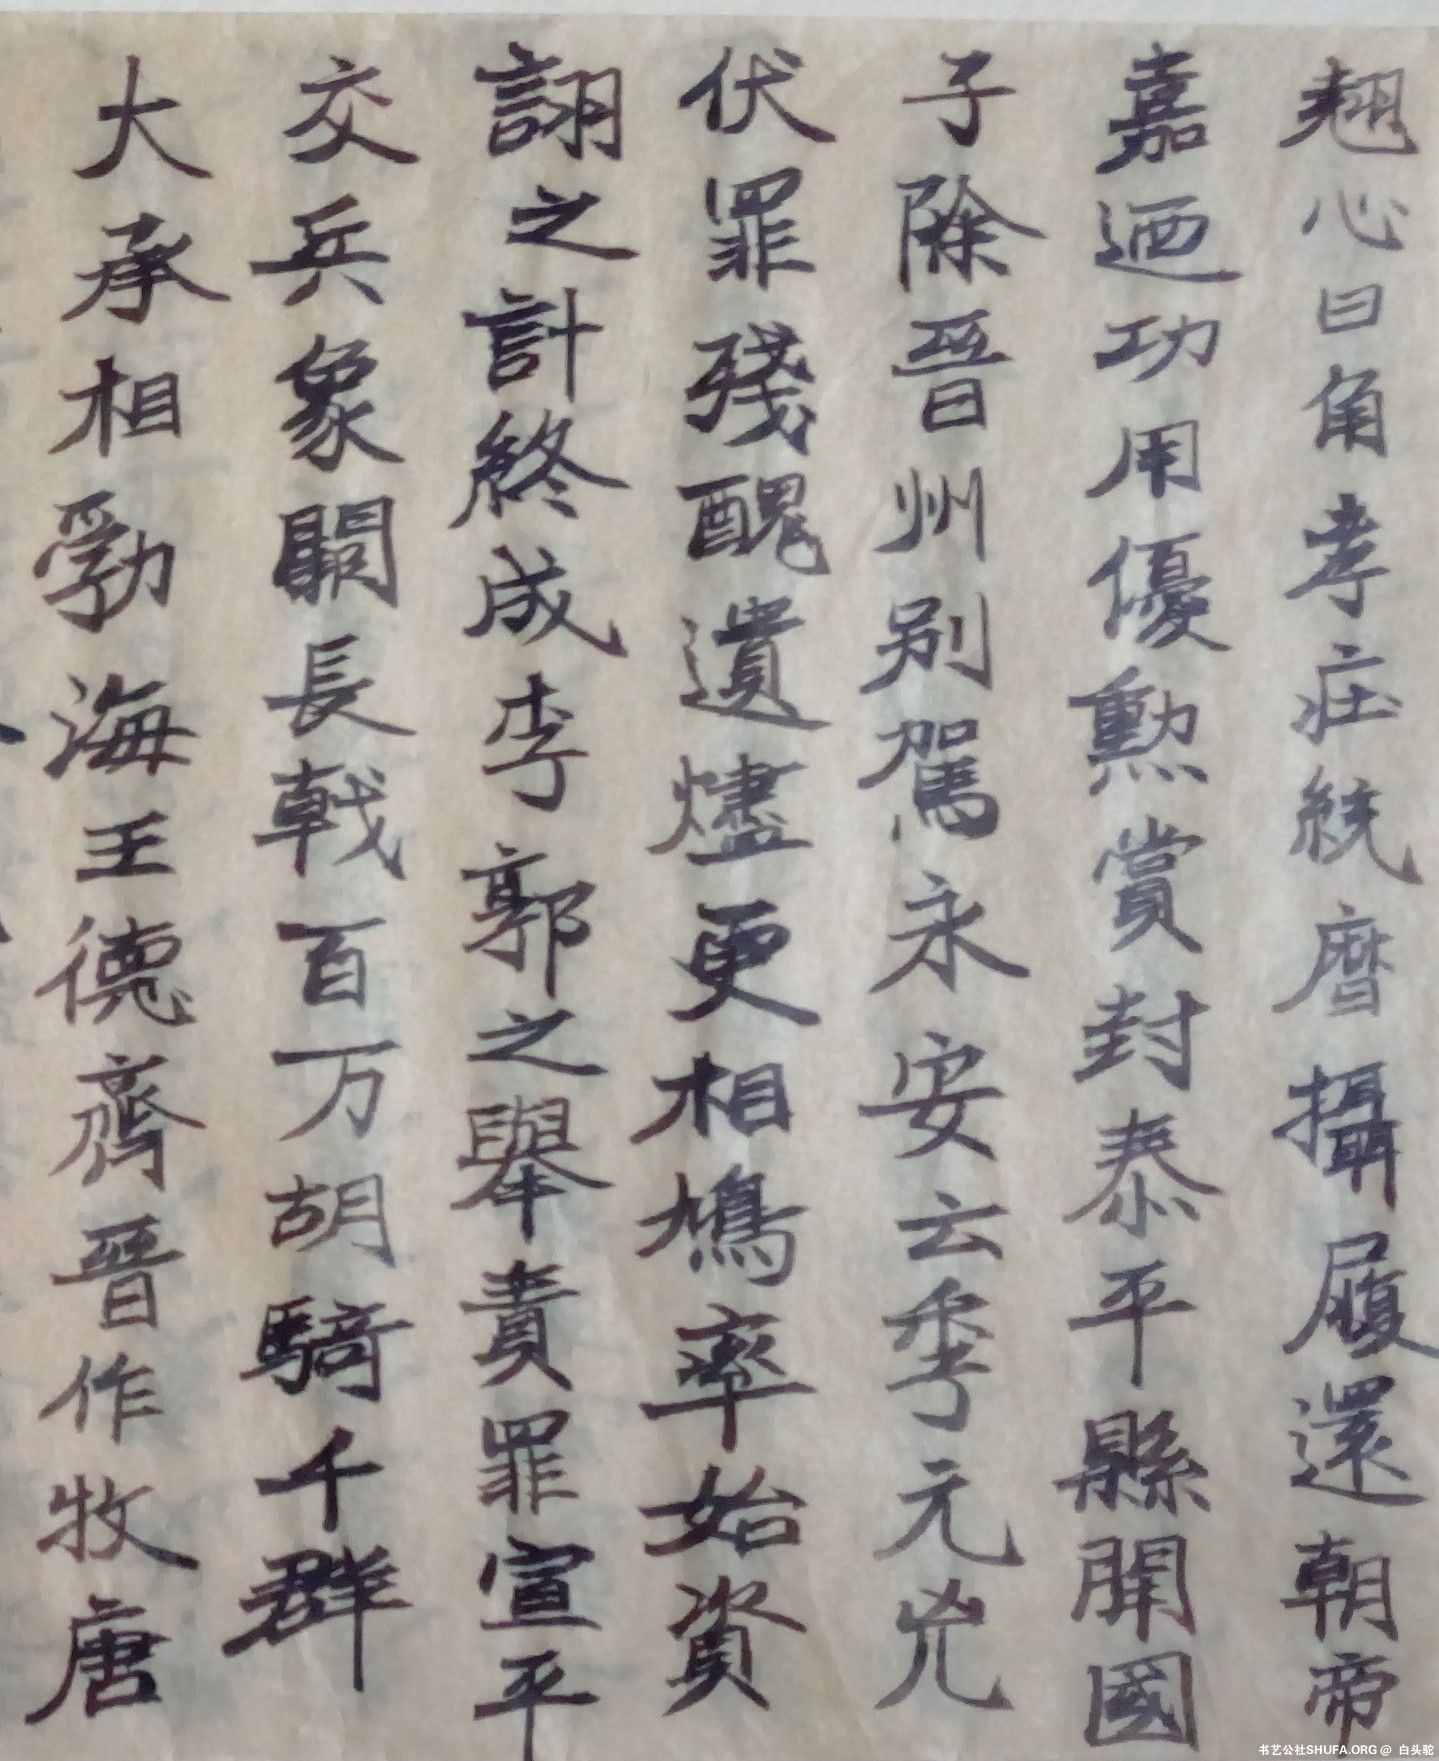 翹心日角孝庄統曆攝履還朝帝
嘉迺功用優勲賞封泰平縣開國
子除晉州別駕永安云季元兇
伏罪殘醜遺燼更相鳩率始資
詡之計終成李郭之舉責罪宣平
交兵象闕長戟百万胡騎千群
大承相勃海王德齊晉作牧唐
书艺公社SHUFA.ORG @ 白头驼